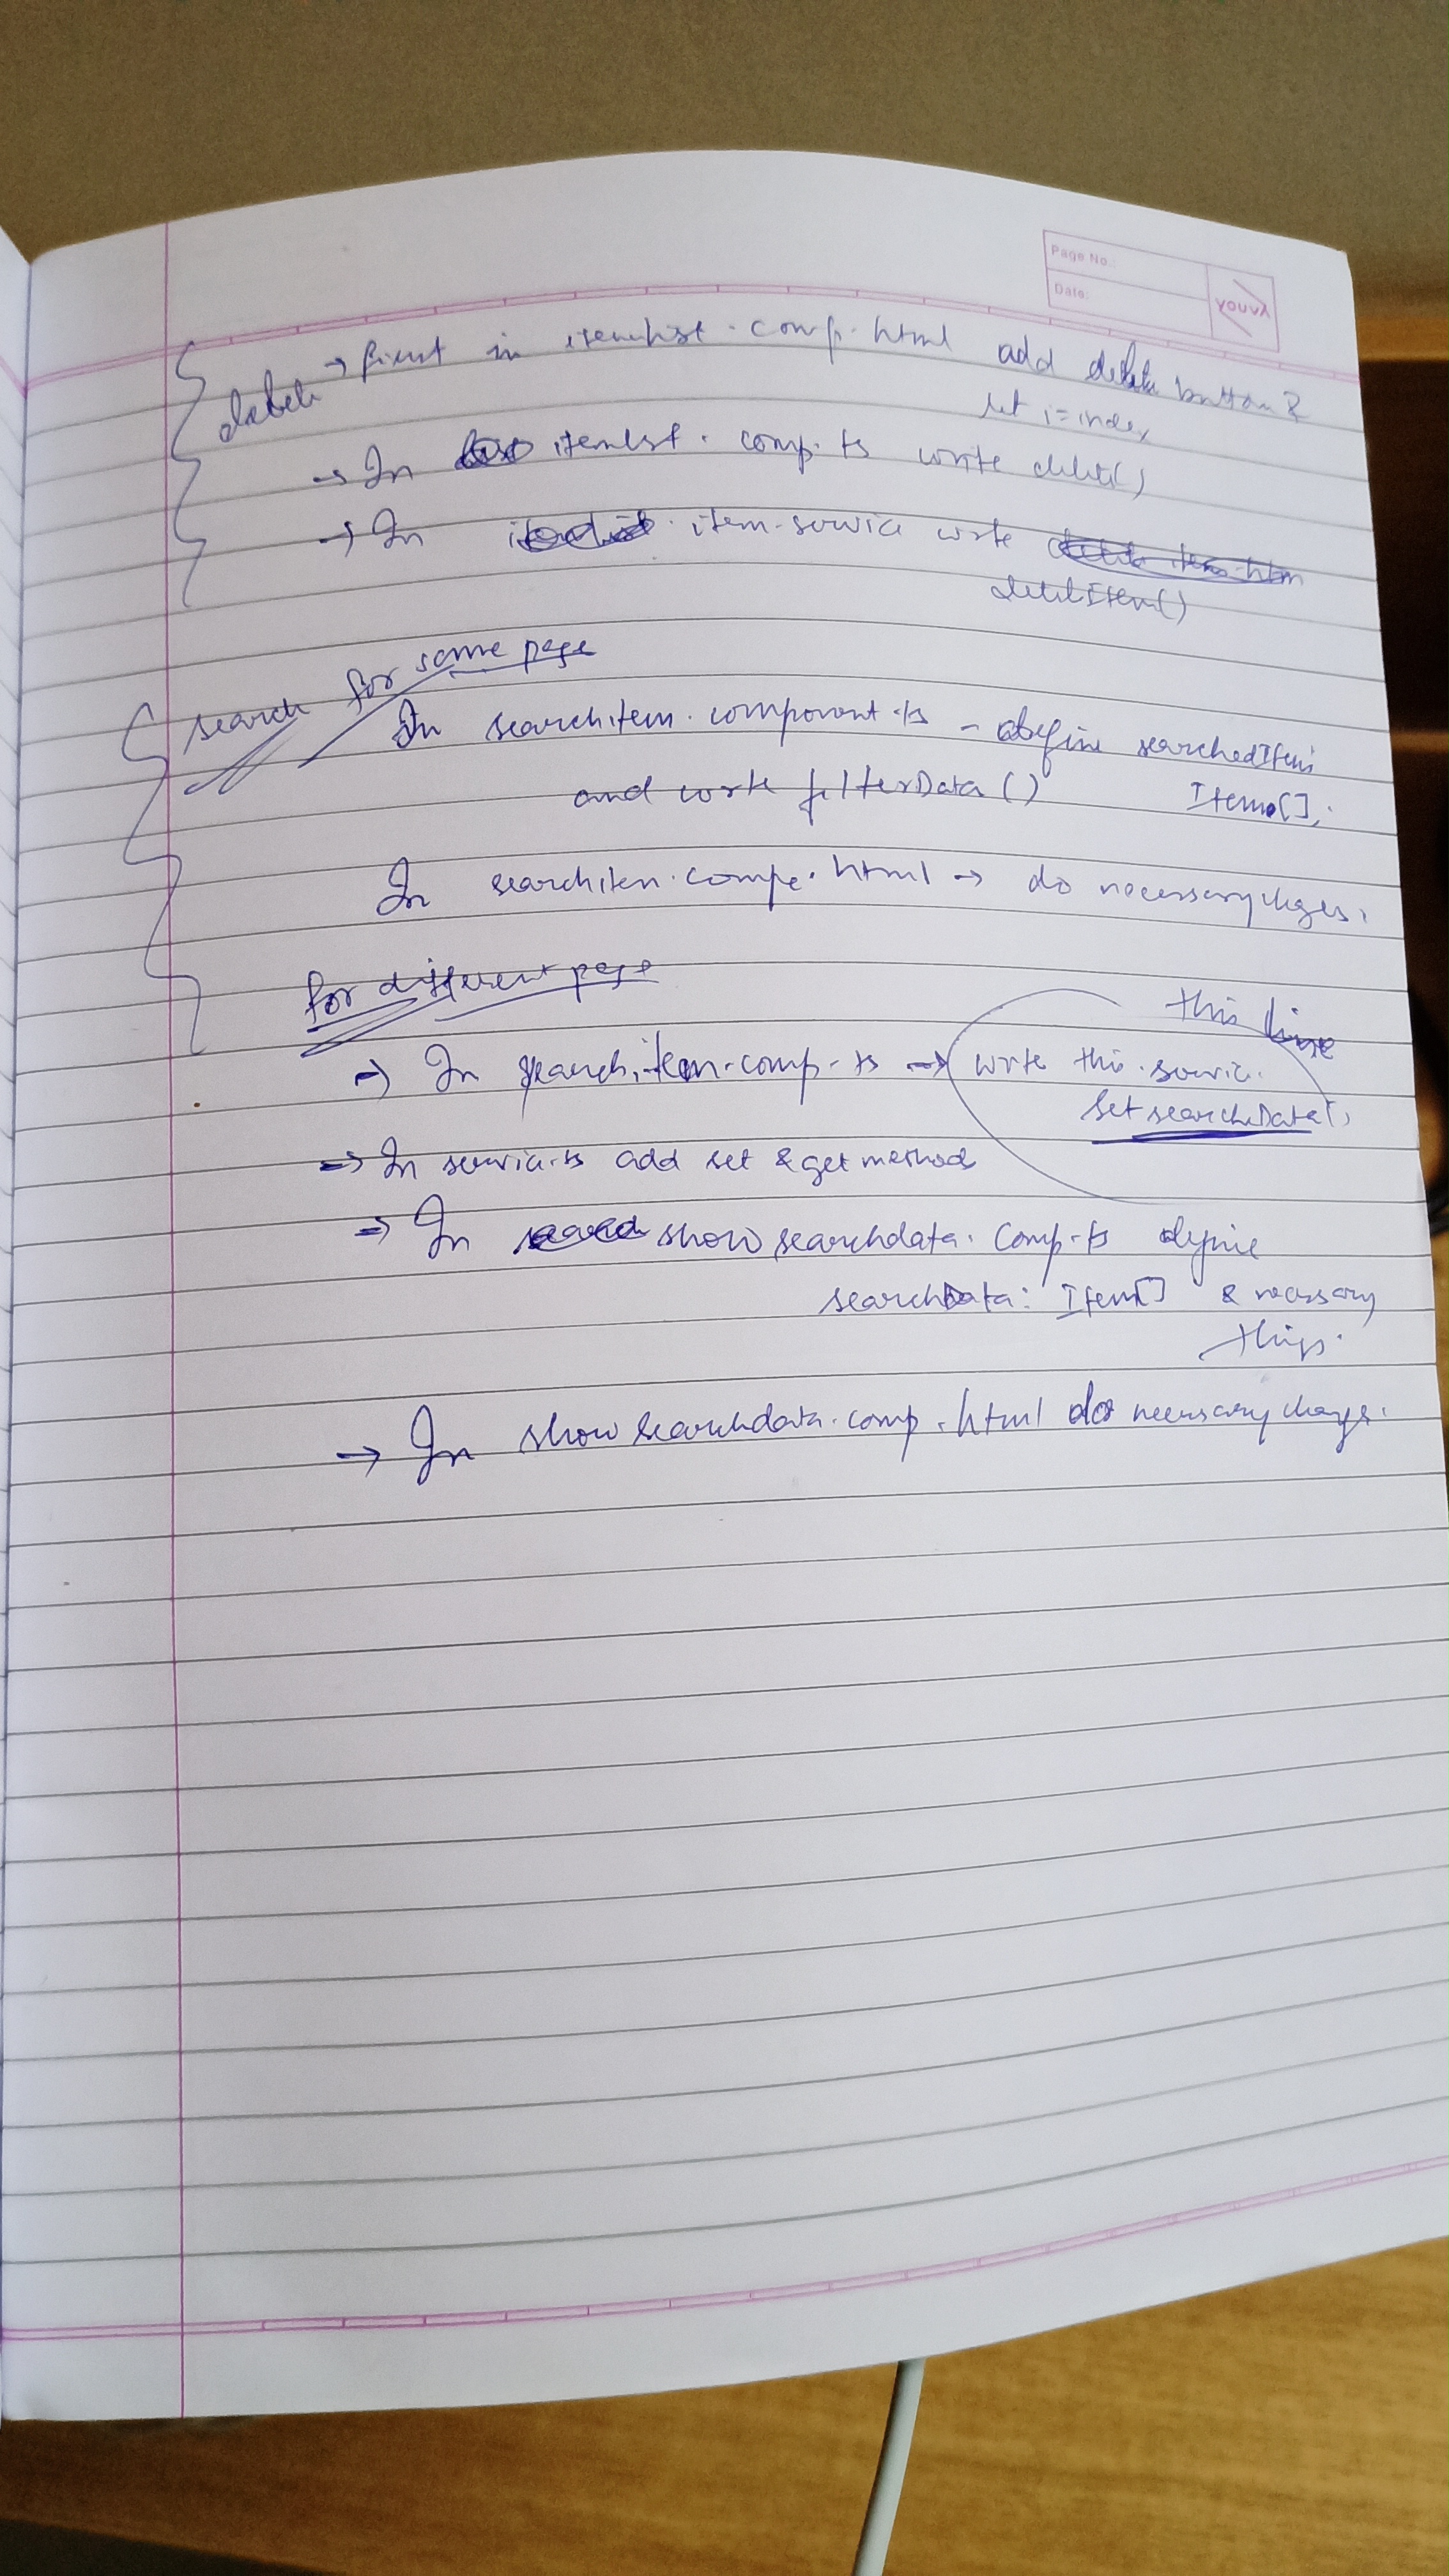 Page No.:
Date:
YOUVA
delete → first in itemlist.comp.html add delete button &
let i=index
→ In itemlist.comp.ts write delete()
→ In item-service write
deleteItem()
search for same page
In searchitem.component.ts - define searchedItems
and write filterData() Item[];
In searchitem.compe.html → do necessary chges.
for different page
this line
→ In searchitem-comp-ts → write this.service.
SetsearchData();
→ In service.ts add set & get method
→ In show searchdata.comp-ts define
searchData: Item[] & necessary
things.
→ In show searchdata.comp.html do necessary changes.